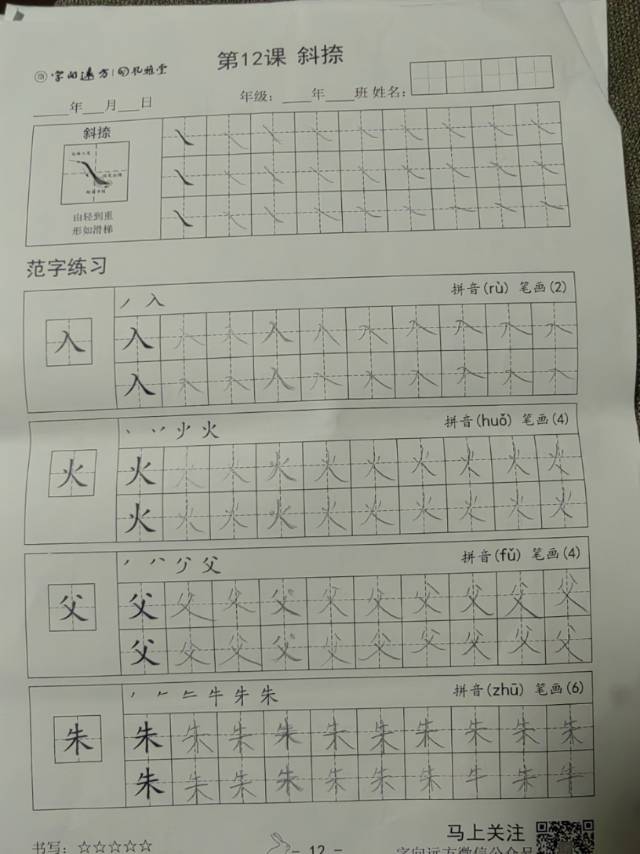 第12课 斜捺
____年___月___日 年级：____年____班 姓名：
斜捺
由轻到重
形如滑梯
范字练习
丿 入 拼音(rù) 笔画(2)
入 入 入 入 入 入 入 入 入 入 入
入 入 入 入 入 入 入 入 入 入
火 火 拼音(huǒ) 笔画(4)
火 火 火 火 火 火 火 火 火 火 火
火 火 火 火 火 火 火 火 火 火
父 拼音(fǔ) 笔画(4)
父 父 父 父 父 父 父 父 父 父 父
父 父 父 父 父 父 父 父 父 父
牛 朱 拼音(zhū) 笔画(6)
朱 朱 朱 朱 朱 朱 朱 朱 朱 朱 朱
朱 朱 朱 朱 朱 朱 朱 朱
马上关注
书写：☆☆☆☆☆ - 12 - 字向远方微信公众号